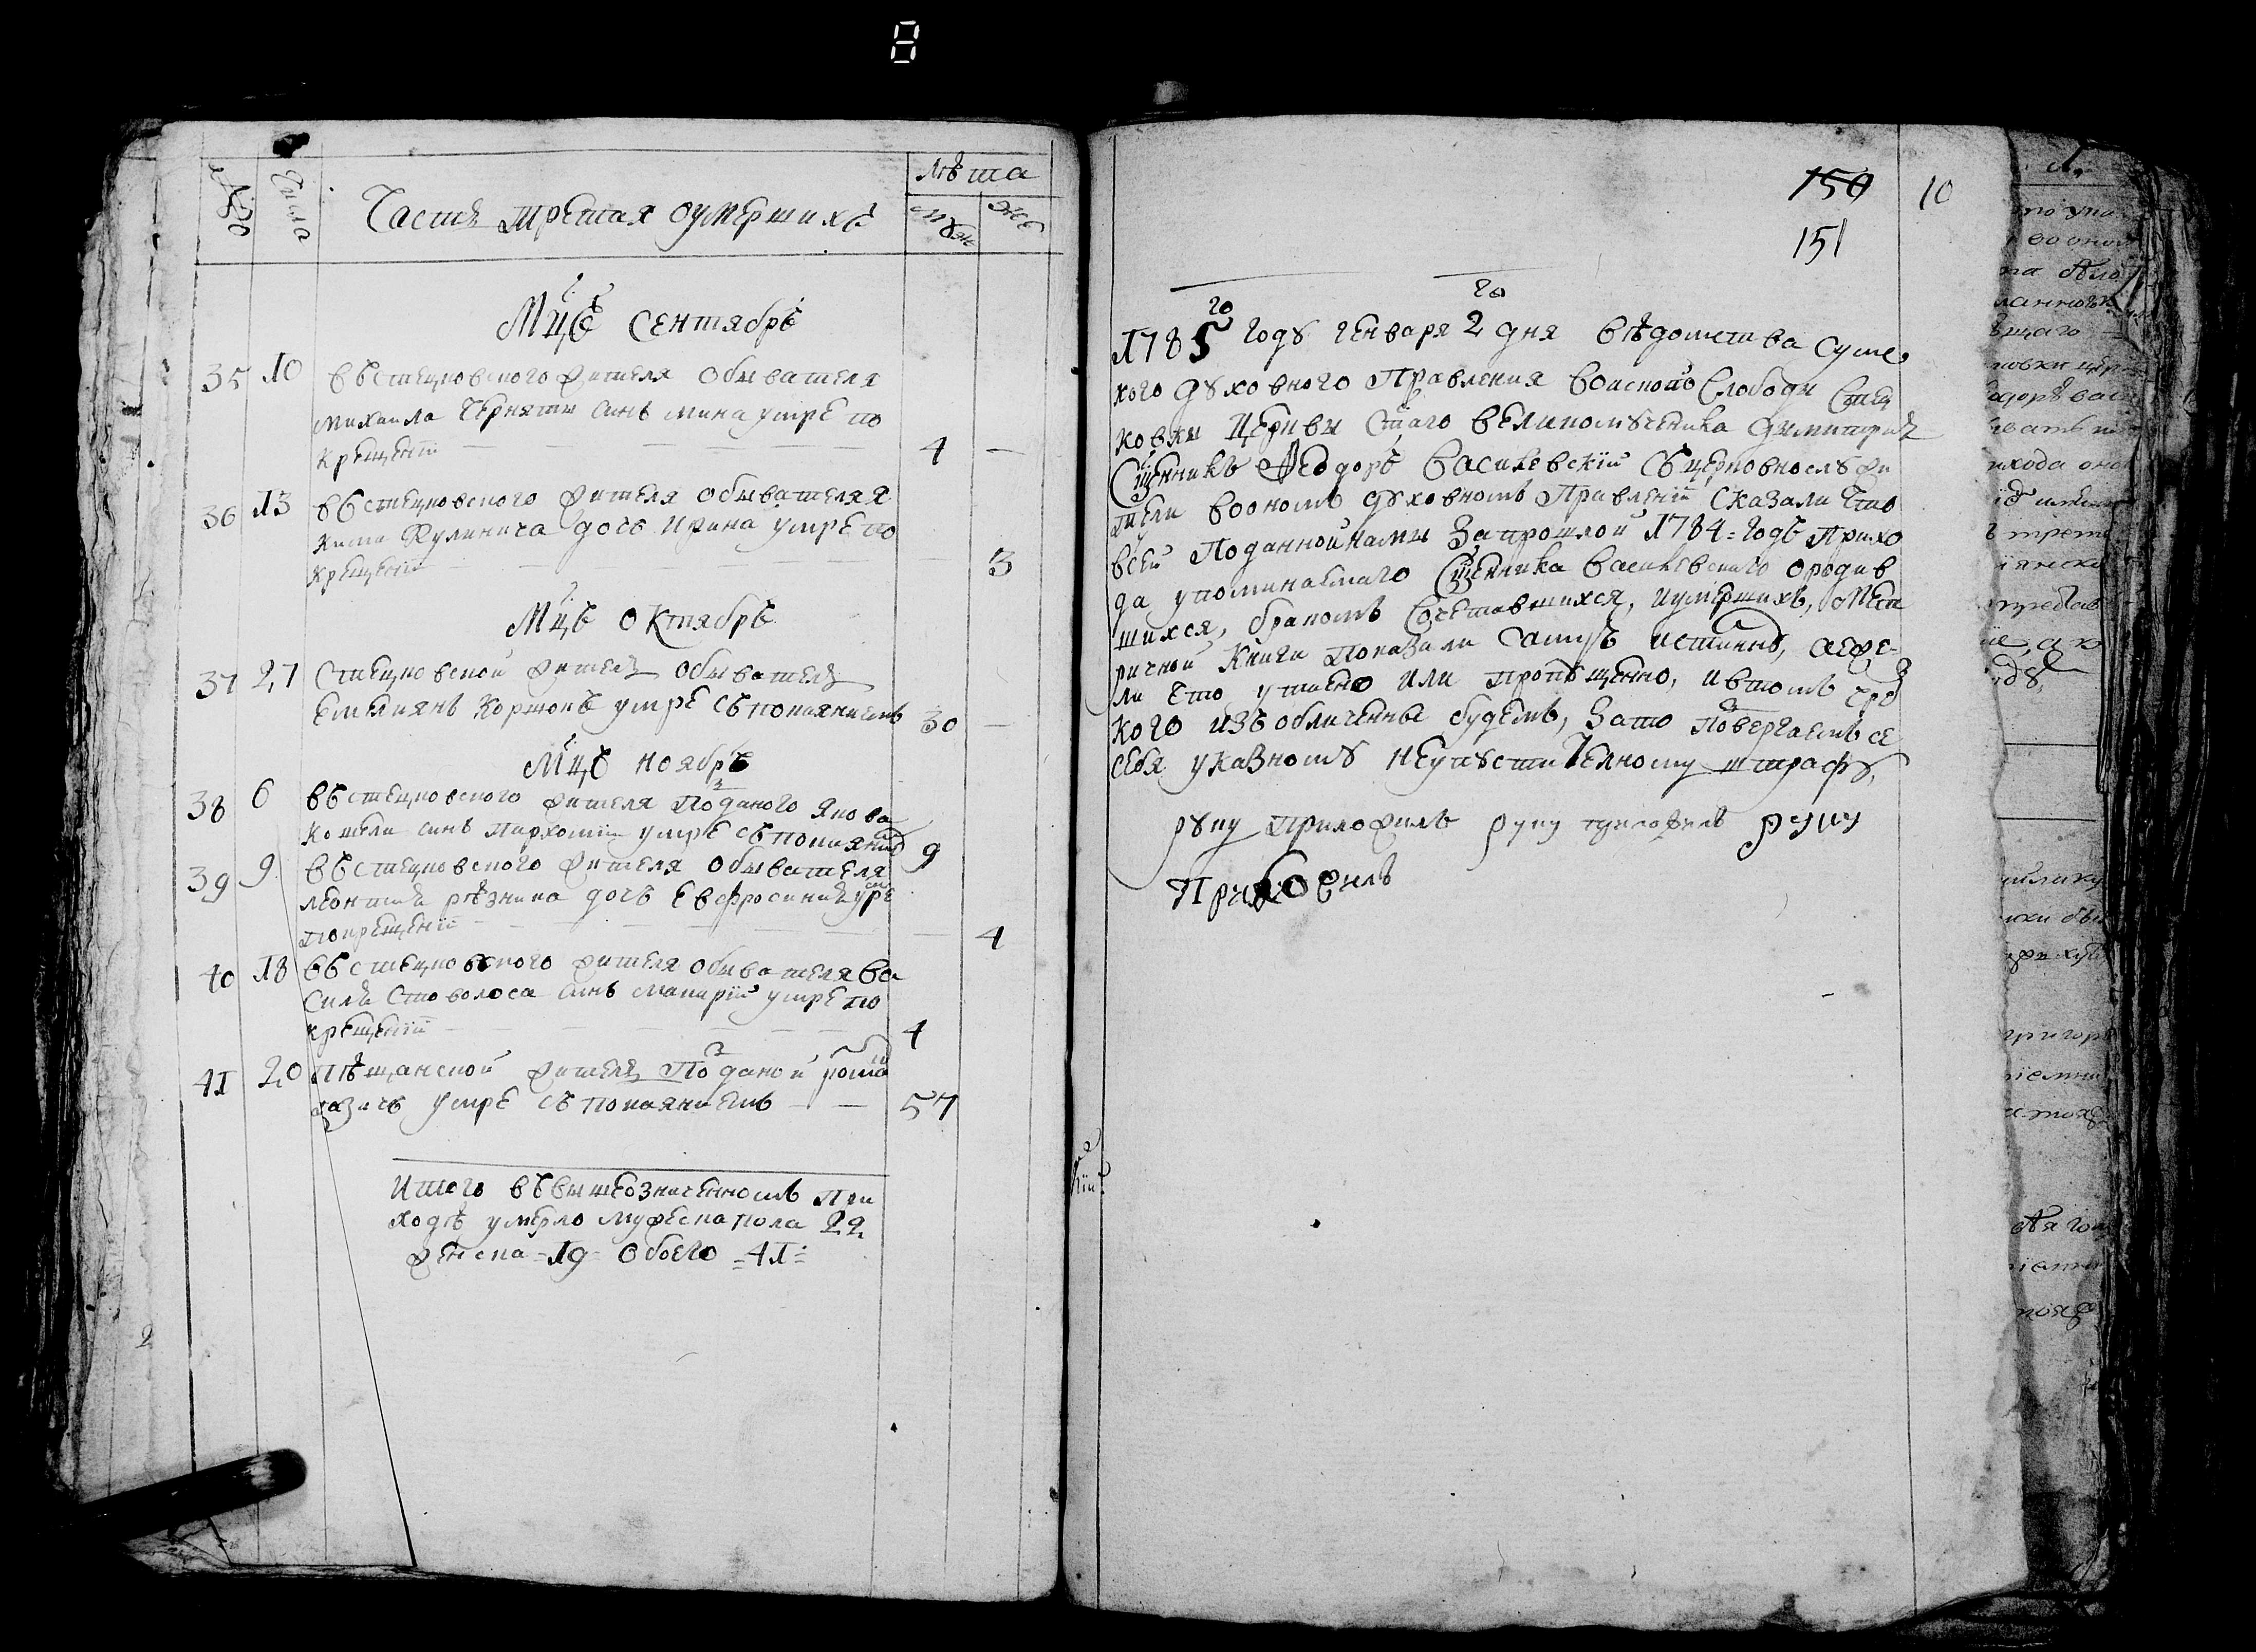 №
Числа
Часть третая о умерших
лѣта
муж
же
Мцъ Сентябръ
35 10 въ стецковского жителя обывателя
михаила Черняти синъ мина умре по
крещеніи 4 —
36 13 въ стецковского жителя обывателя я
кима Кулинича дочъ Ирина умре по
крещеніи — 3
Мцъ Октябръ
37 27 Стецковской житель обыватель
Емелиянъ Коршонъ умре съ покаяниемъ 30 —
Мцъ ноябръ
38 6 въ стецковского жителя поданого якова
Кошели синъ пархомій умре съ покаяние 9
39 9 въ стецковского жителя обывателя
леонтия рѣзника дочъ Евфросиния умре
по крещеніи — 4
40 18 въ стецковского жителя обывателя Ва
силя Стоволоса синъ макарій умре по
крещеніи 4
41 20 пѣщанской житель поданой рома
казачъ умре съ покаяниемъ — — 57
Итого въ вышеозначенномъ при
ходѣ умерло мужеска пола 22
женска - 19 - обоего = 41 =
150 10
151
1785 го году генваря 2 го дня вѣдомства Суме
кого духовного Правления воиской Слободи Стец
ковки Церкви Стаго великомученика Димитрия
Сщенникъ Феодоръ Василевскій съ церковнослужи
тели во ономъ духовномъ Правленіи сказали что
въсеи поданной нами за прошлой 1784 = годъ прихо
да упоминаемаго Сщенника Василевского о родив
шихся, бракомъ сочетавшихся, и умершихъ, мет
ричной книги показали самую истинну, а еже-
ли что утаено или пропущенно, и в томъ чрез
кого изъобличенны будемъ, за то повергаемъ се
себя указному неупустителному штрафу,
руку приложилъ руку приложилъ руку
приложилъ